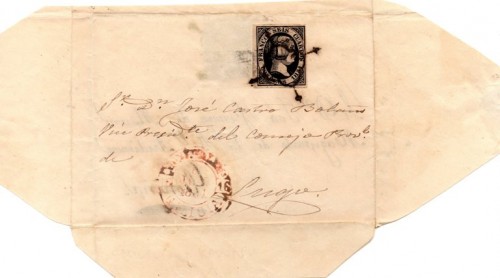 FRANCO SEIS CUARTOS
Sr. Dn. José Castro Bolaño
Vice Presidte. del Consejo Provl.
de
Lugo.